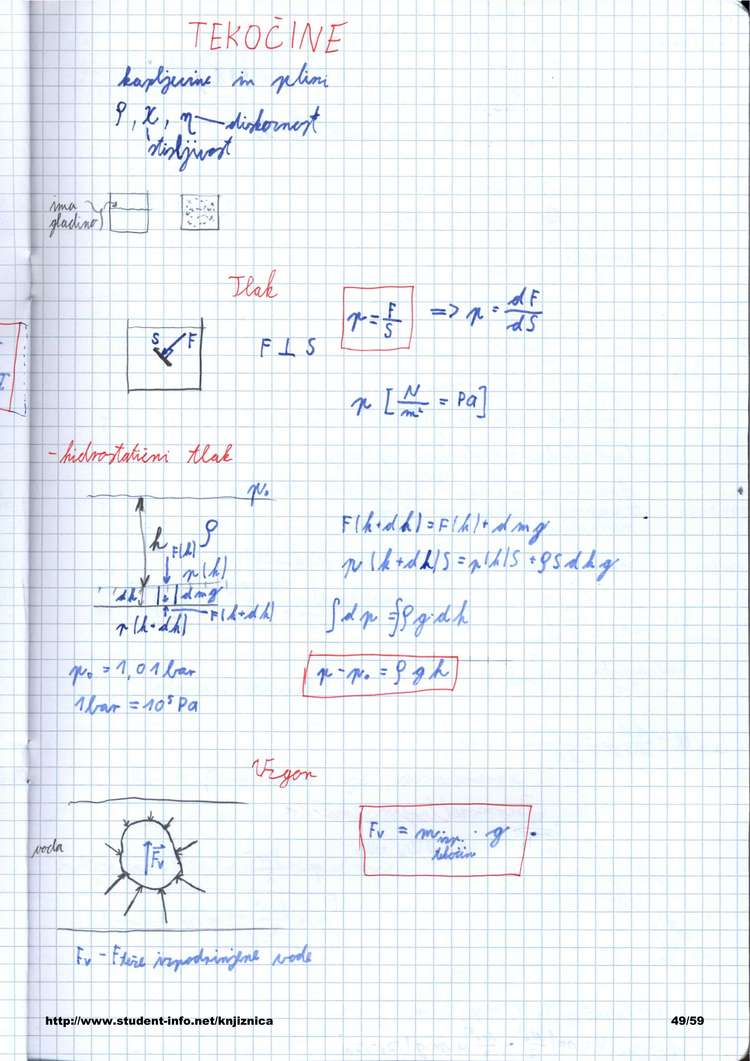 TEKOČINE
kapljevine in plini
ρ, χ, η — diskoznost
stisljivost
ima
gladino
Tlak
p = F/S => p = dF/dS
S F
F ⊥ S
p [N/m² = Pa]
- hidrostatični tlak
p₀
h F(h) ρ
p(h)
dh dmg
F(h+dh)
p(h+dh)
F(h+dh) = F(h) + dmg
p(h+dh)S = p(h)S + ρSdhg
∫dp = ∫ρg·dh
p₀ = 1,01 bar
1 bar = 10⁵ Pa
p - p₀ = ρgh
Vzgon
voda
Fv
Fv = m izp. tekočin · g
Fv - Fteže izpodrinjene vode
http://www.student-info.net/knjiznica
49/59